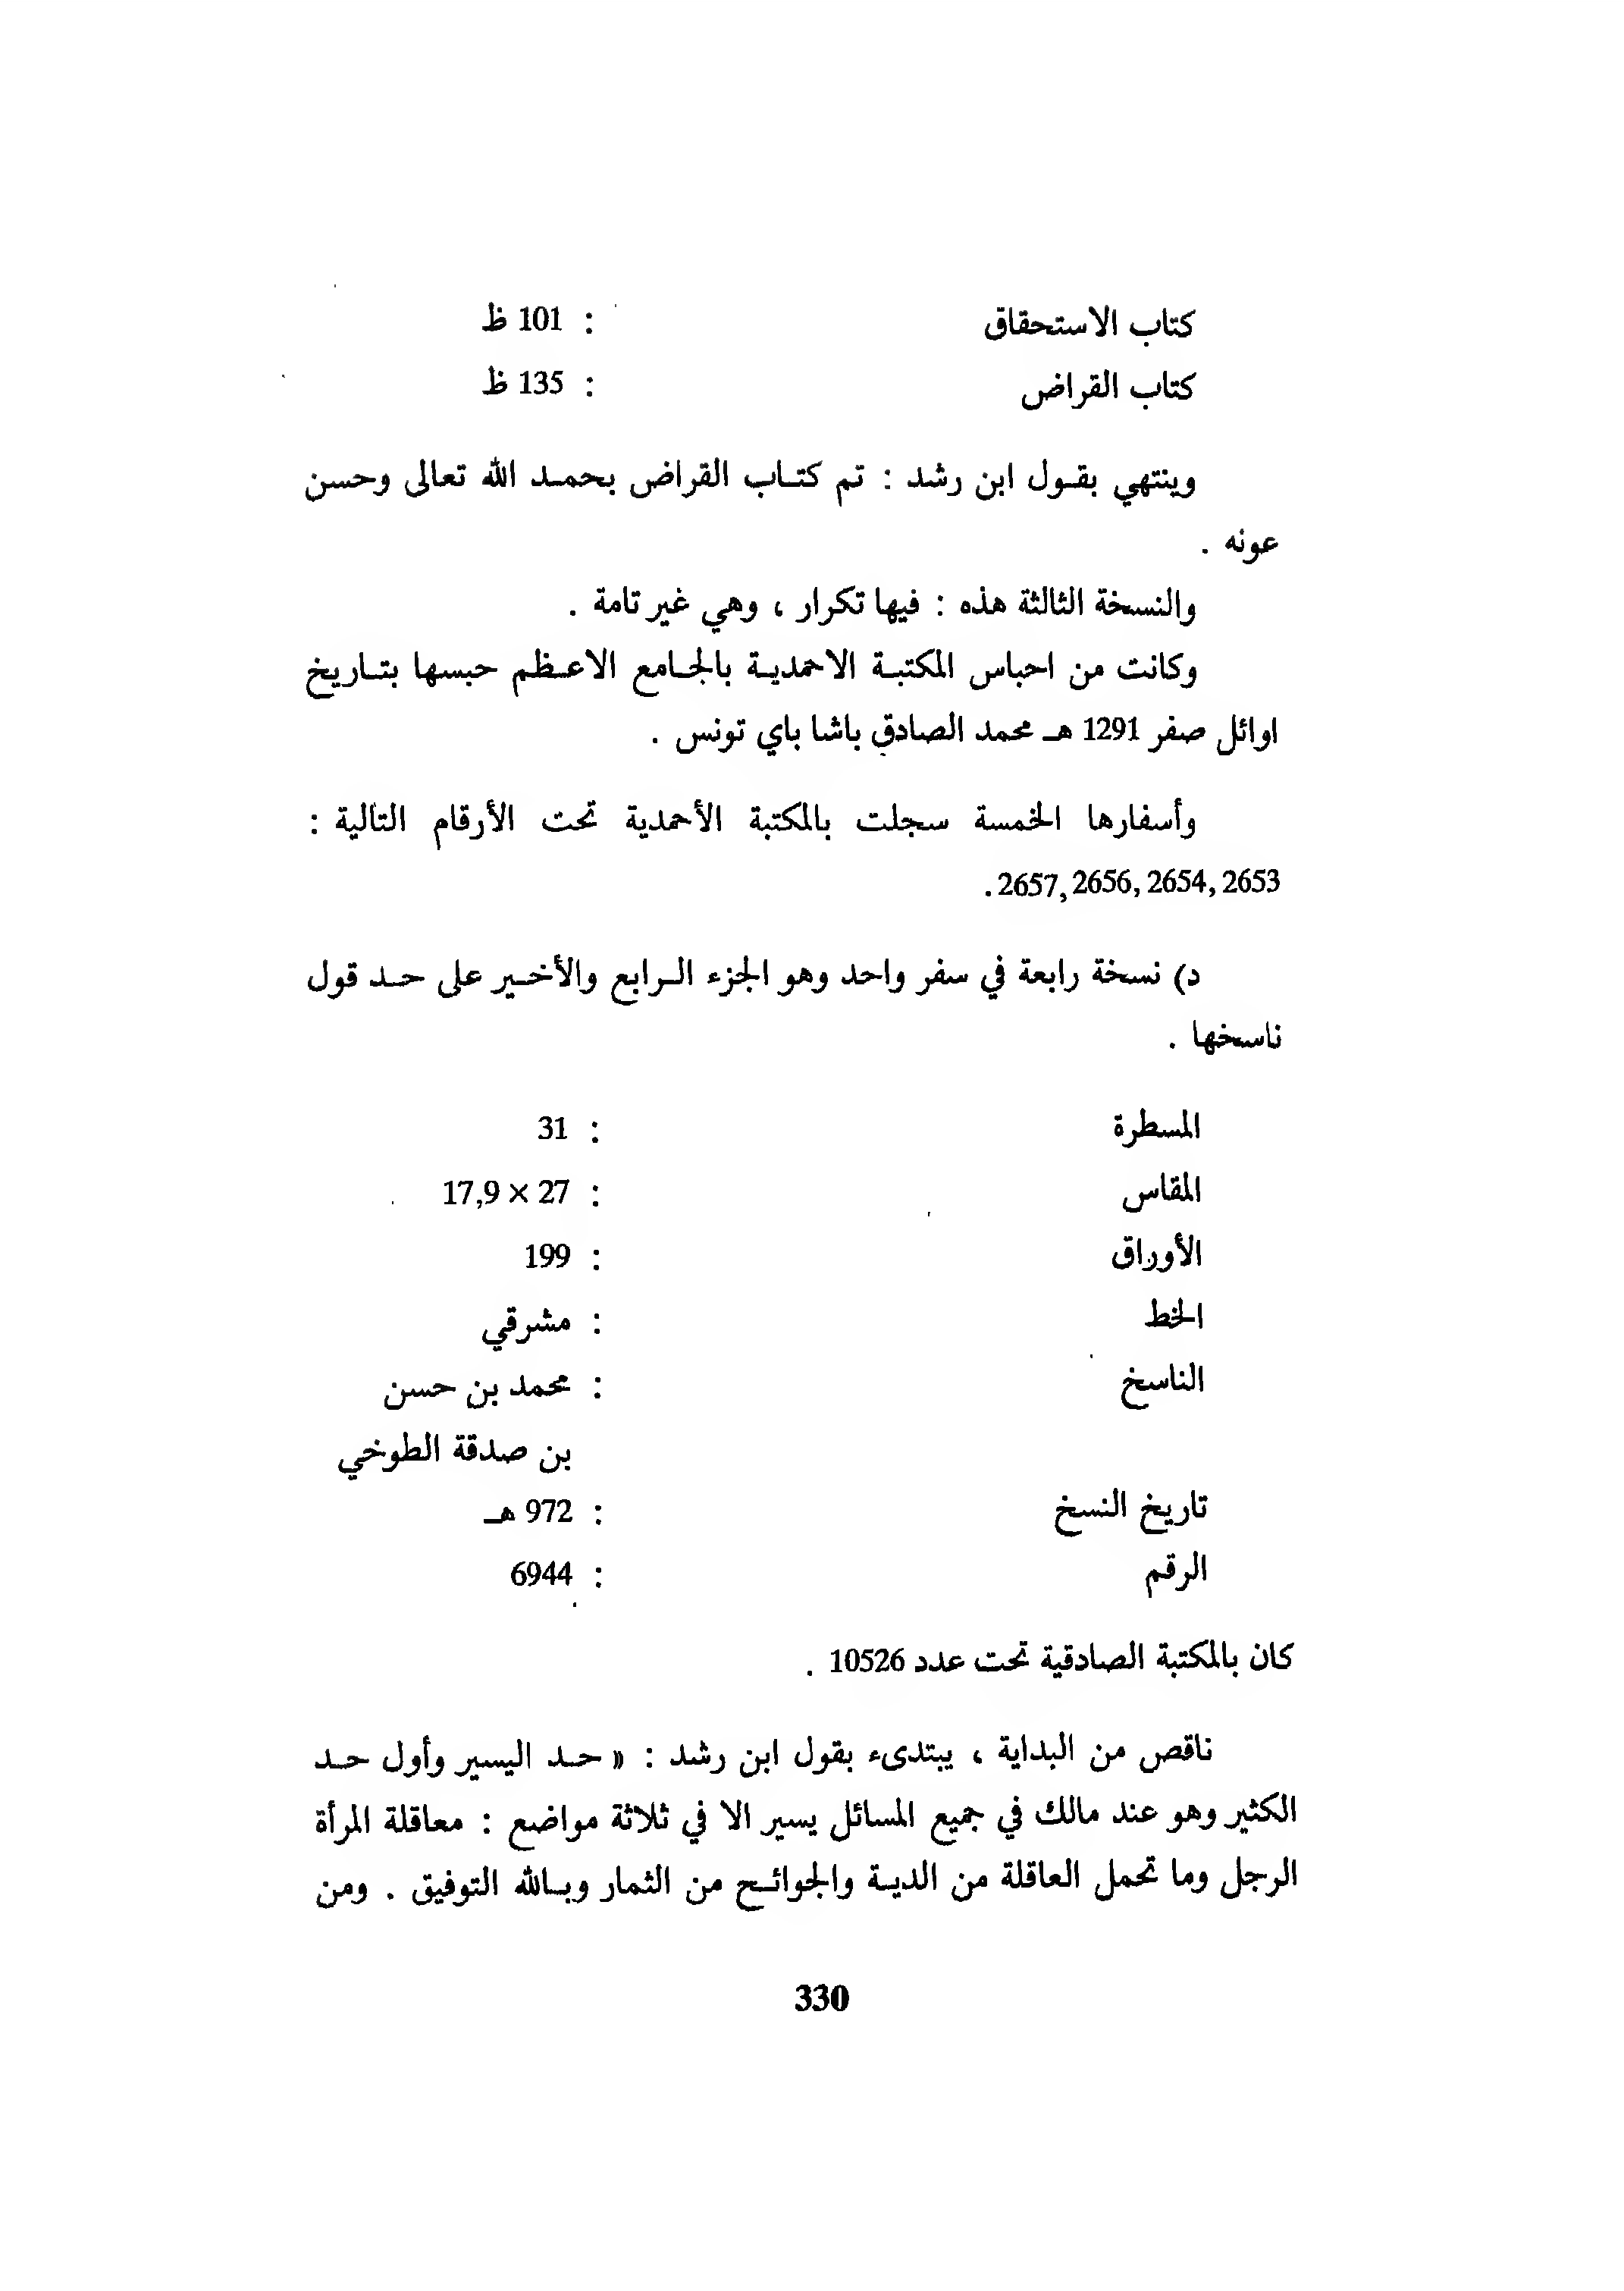 كتاب الاستحقاق : 101 ظ
كتاب القراض : 135 ظ
وينتهي بقول ابن رشد : تم كتاب القراض بحمد الله تعالى وحسن
عونه .
والنسخة الثالثة هذه : فيها تكرار ، وهي غير تامة .
وكانت من احباس المكتبة الاحمدية بالجامع الاعظم حبسها بتاريخ
اوائل صفر 1291 هـ محمد الصادق باشا باي تونس .
وأسفارها الخمسة سجلت بالمكتبة الأحمدية تحت الأرقام التالية :
2653 ,2654 ,2656 ,2657 .
د) نسخة رابعة في سفر واحد وهو الجزء الرابع والأخير على حد قول
ناسخها .
المسطرة : 31
المقاس : 27 × 17,9
الأوراق : 199
الخط : مشرقي
الناسخ : محمد بن حسن
بن صدقة الطوخي
تاريخ النسخ : 972 هـ
الرقم : 6944
كان بالمكتبة الصادقية تحت عدد 10526 .
ناقص من البداية ، يبتدىء بقول ابن رشد : « حد اليسير وأول حد
الكثير وهو عند مالك في جميع المسائل يسير الا في ثلاثة مواضع : معاقلة المرأة
الرجل وما تحمل العاقلة من الدية والجوائح من الثمار وبالله التوفيق . ومن
330